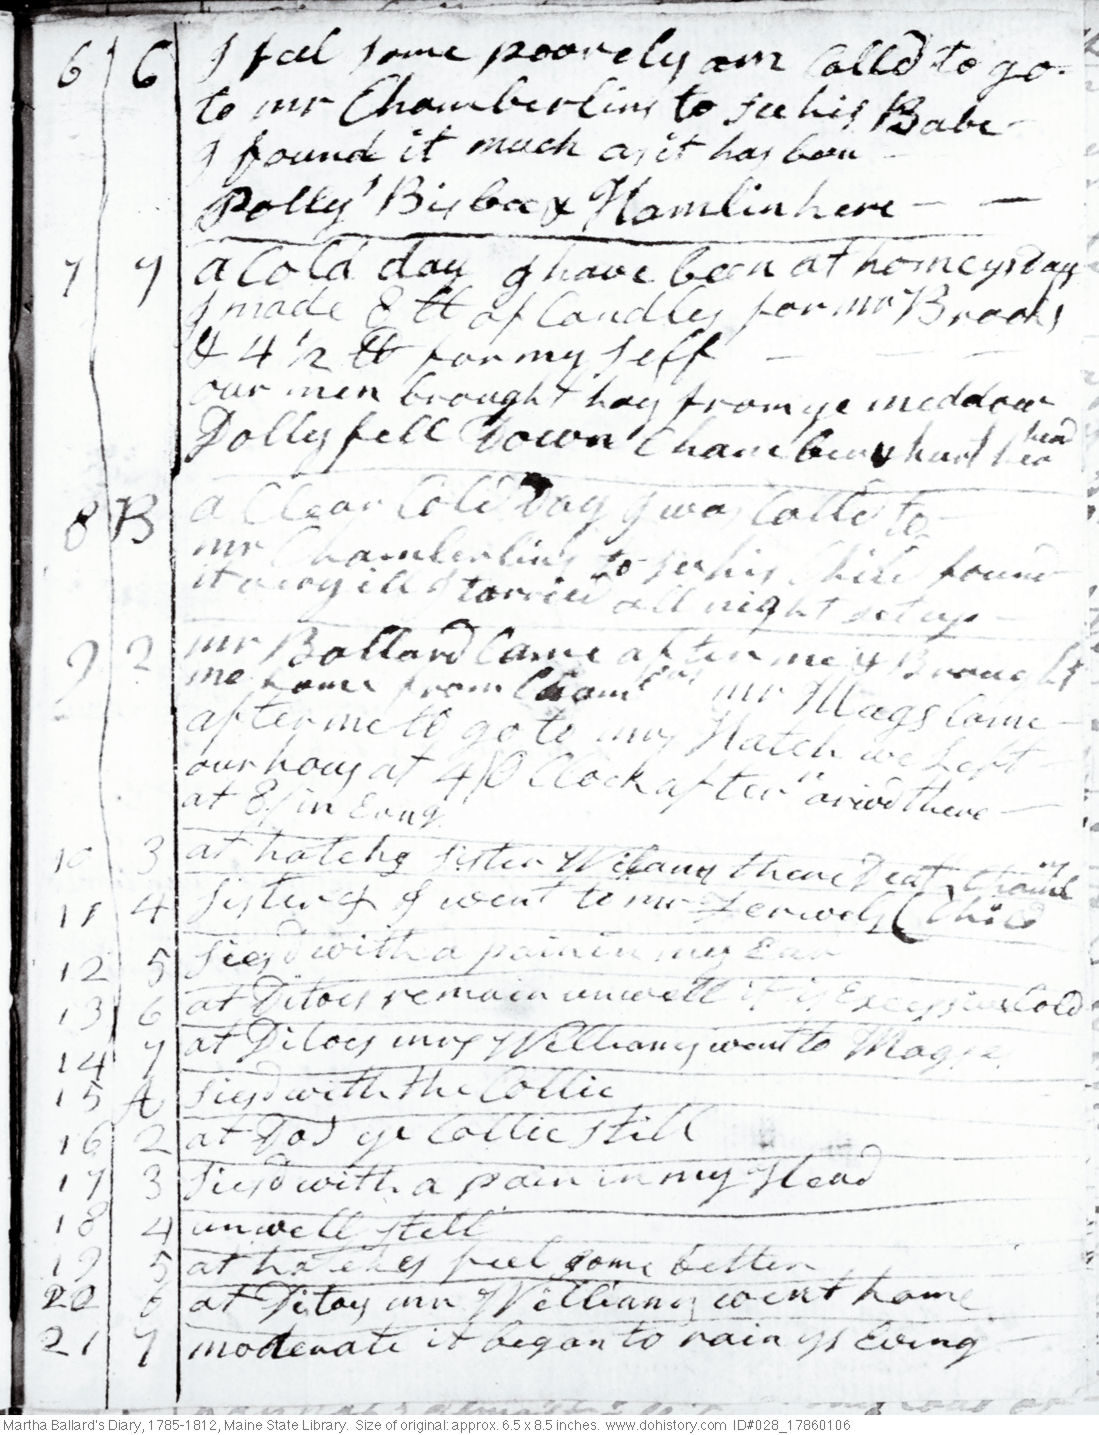 6 6 I feel some poorely am Calld to go
to mr Chamberlins to see his Babe
I found it much as it has been
Polly Bisbee & Hamlin here
7 7 a Cold day I have been at home ys Day
I made 8 lb of Candles for mr Brooks
& 4 1/2 lb for my self
our men brought hay from ye meddow
Dolly fell Down Chamber & hurt her head
8 B a Clear Cold Day I was Calld to
mr Chamberlins to see his Child found
it very ill I tarried all night set up
9 2 mr Ballard Came after me & Brought
me home from Chamlns mr Magr Came
after me to go to mrs Hatch we Left
our hous at 4 / O Clock after" arivd there
at 8 / in Evng
10 3 at hatchs sister Williams there
11 4 sister & I went to mr
12 5 siesd with a pain in my Ear
13 6 at Ditoes remain unwell it is Excessive Cold
14 7 at Ditoes mrs Williams went to Magrs
15 A siesd with the Collic
16 2 at Do ye Collic still
17 3 siesd with a pain in my Head
18 4 unwell still
19 5 at hatches feel some better
20 6 at Ditos mrs Williams went home
21 7 moderate it began to rain ys Evng
Martha Ballard's Diary, 1785-1812, Maine State Library. Size of original: approx. 6.5 x 8.5 inches. www.dohistory.com ID#028_17860106